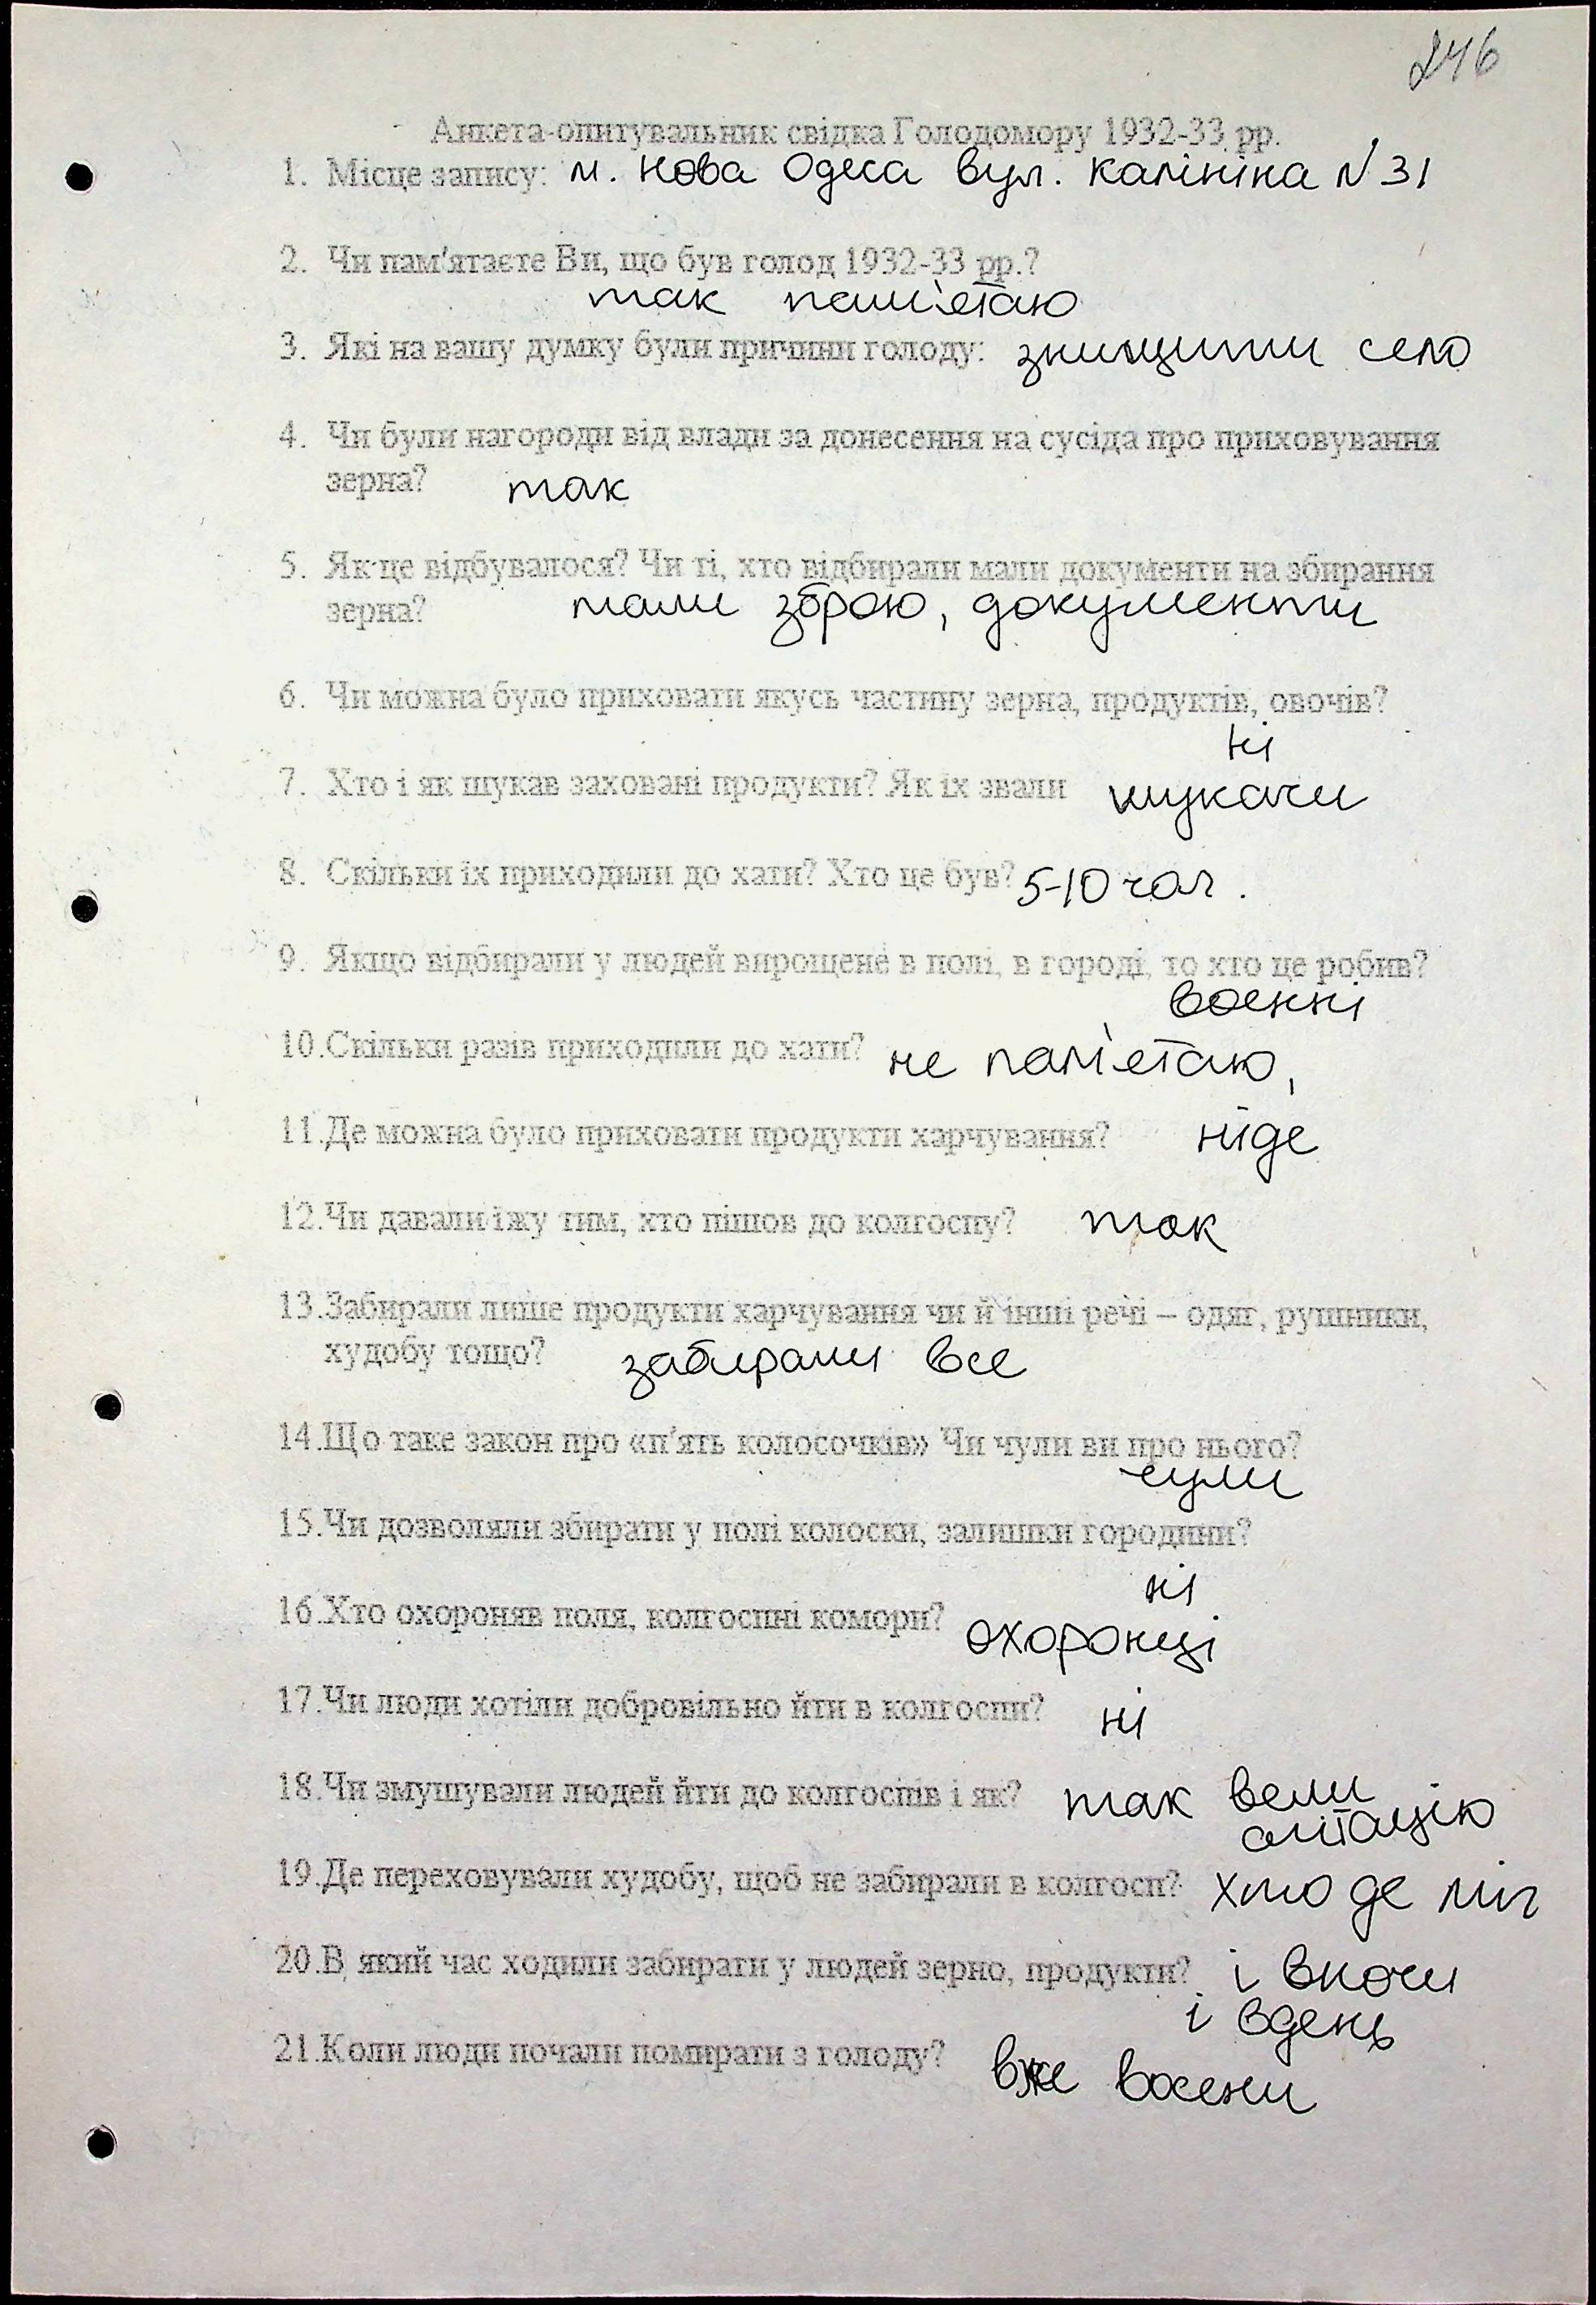 246
Анкета-опитувальник свідка Голодомору 1932-33 рр.
1. Місце запису: м. Нова Одеса вул. Калініна №31
2. Чи пам'ятаєте Ви, що був голод 1932-33 рр.?
так пам'ятаю
3. Які на вашу думку були причини голоду: знищити село
4. Чи були нагороди від влади за донесення на сусіда про приховування
зерна? так
5. Як це відбувалося? Чи ті, хто відбирали мали документи на збирання
зерна? мали зброю, документи
6. Чи можна було приховати якусь частину зерна, продуктів, овочів?
ні
7. Хто і як шукав заховані продукти? Як їх звали шукачи
8. Скільки їх приходили до хати? Хто це був? 5-10 чол.
9. Якщо відбирали у людей вирощене в полі, в городі, то хто це робив?
воєнні
10.Скільки разів приходили до хати? не пам'ятаю,
11.Де можна було приховати продукти харчування? ніде
12.Чи давали їжу тим, хто пішов до колгоспу? так
13.Забирали лише продукти харчування чи й інші речі – одяг, рушники,
худобу тощо? забирали все
14.Що таке закон про «п'ять колосочків» Чи чули ви про нього?
чули
15.Чи дозволяли збирати у полі колоски, залишки городини?
ні
16.Хто охороняв поля, колгоспні комори? охоронці
17.Чи люди хотіли добровільно йти в колгоспи? ні
18.Чи змушували людей йти до колгоспів і як? так вели
агітацію
19.Де переховували худобу, щоб не забирали в колгосп? хто де міг
20.В який час ходили забирати у людей зерно, продукти? і вночи
і вдень
21.Коли люди почали помирати з голоду? вже восени